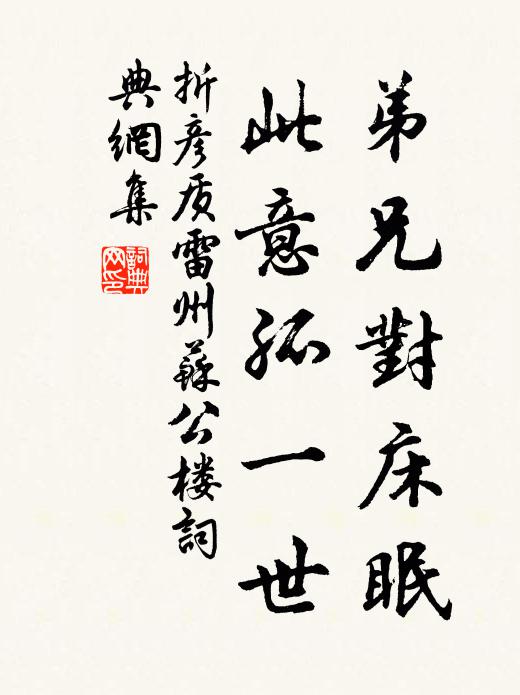 弟兄對床眠
此意孤一世
折彦质雷州蘇公楼詞
典網集
詞典
网印